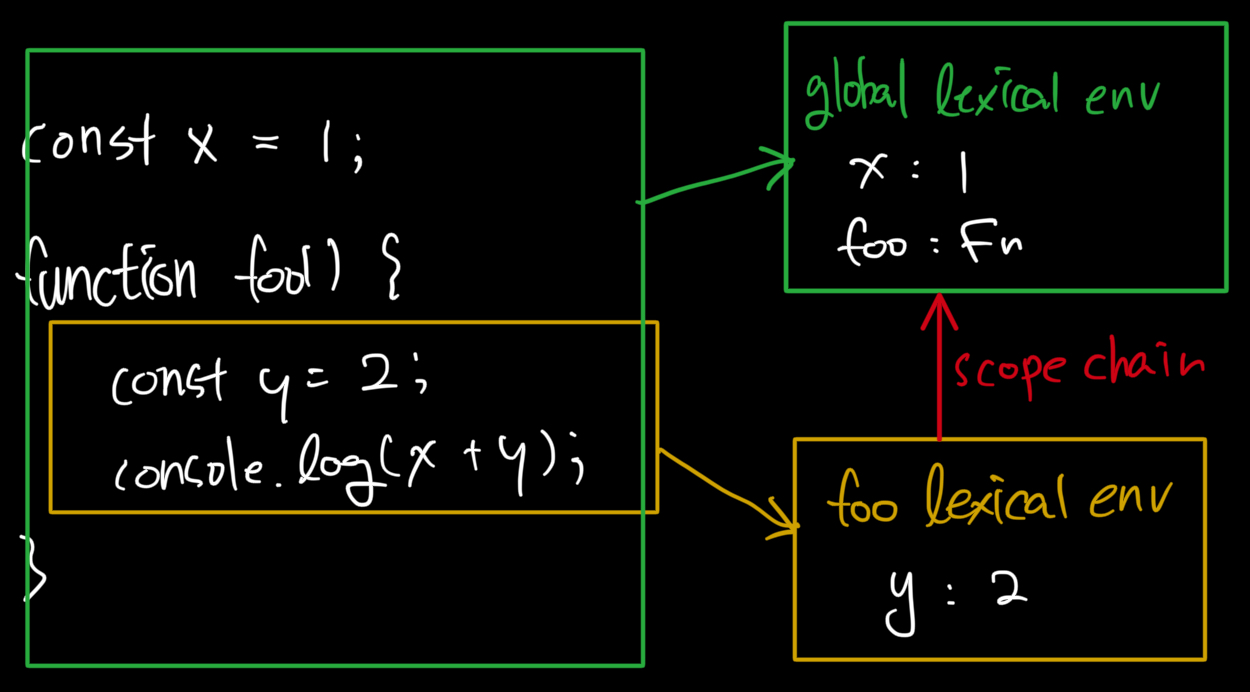 const x = 1;
function foo() {
const y = 2;
console.log(x + y);
}
global lexical env
x : 1
foo : Fn
scope chain
foo lexical env
y : 2